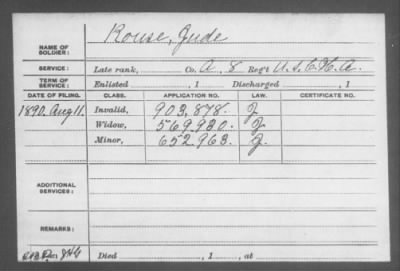 NAME OF SOLDIER: Rouse, Jude
SERVICE: Late rank, Co. A, 8 Reg't U.S.C.H.A.
TERM OF SERVICE: Enlisted , 1 Discharged , 1
DATE OF FILING. CLASS. APPLICATION NO. LAW. CERTIFICATE NO.
1890. Aug 11. Invalid, 903,878. J
Widow, 569.930. J
Minor, 652.963. J.
ADDITIONAL SERVICES:
REMARKS:
Died , 1 , at